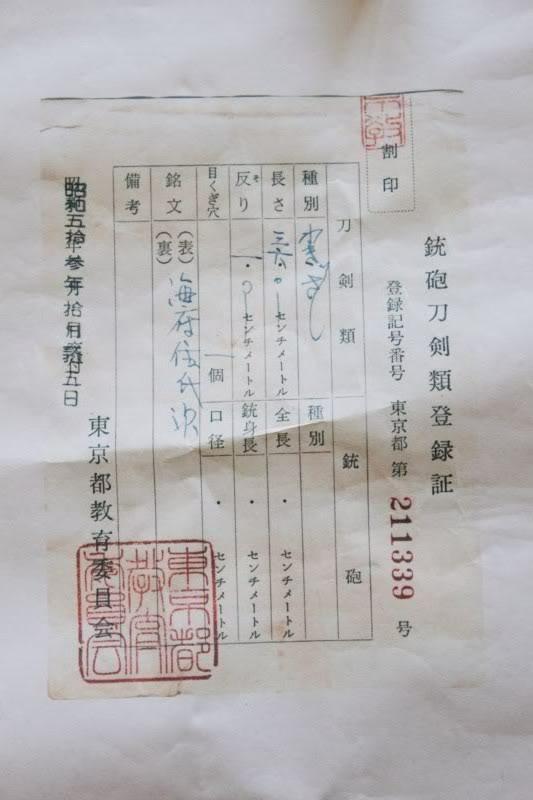 割印
銃砲刀剣類登録証
登録記号番号 東京都 第 211339 号
刀剣類 銃砲
種別 わきざし 種別
長さ センチメートル 全長 ・ センチメートル
反り 一・〇センチメートル 銃身長 ・ センチメートル
目くぎ穴 一個 口径 ・ センチメートル
銘文 (表) 海府住氏次
(裏)
備考
昭和五拾参年拾月五日
東京都教育委員会
東京都教育委員会